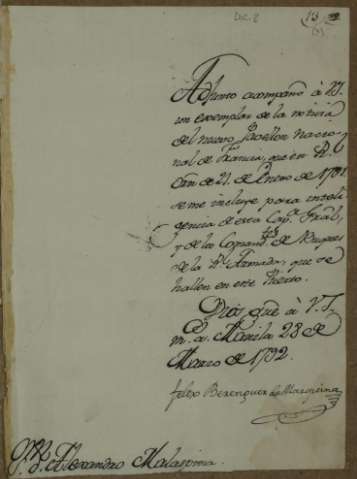 Adjunto acompaño à V.S.
un exemplar de la noticia
del nuevo Pavellon nacio-
nal de Francia, que en Rl.
Orn de 21 de Enero de 1791
se me incluye para inteli-
gencia de esta Capª. Gral,
y de los Comandtes de Buques
de la Rl. Armada, que se
hallen en este Puerto.
Dios gue à V.S.
m. a. Manila 23 de
Marzo de 1792.
Felix Berenguer de Marquina
D. Alexandro Malaspina.